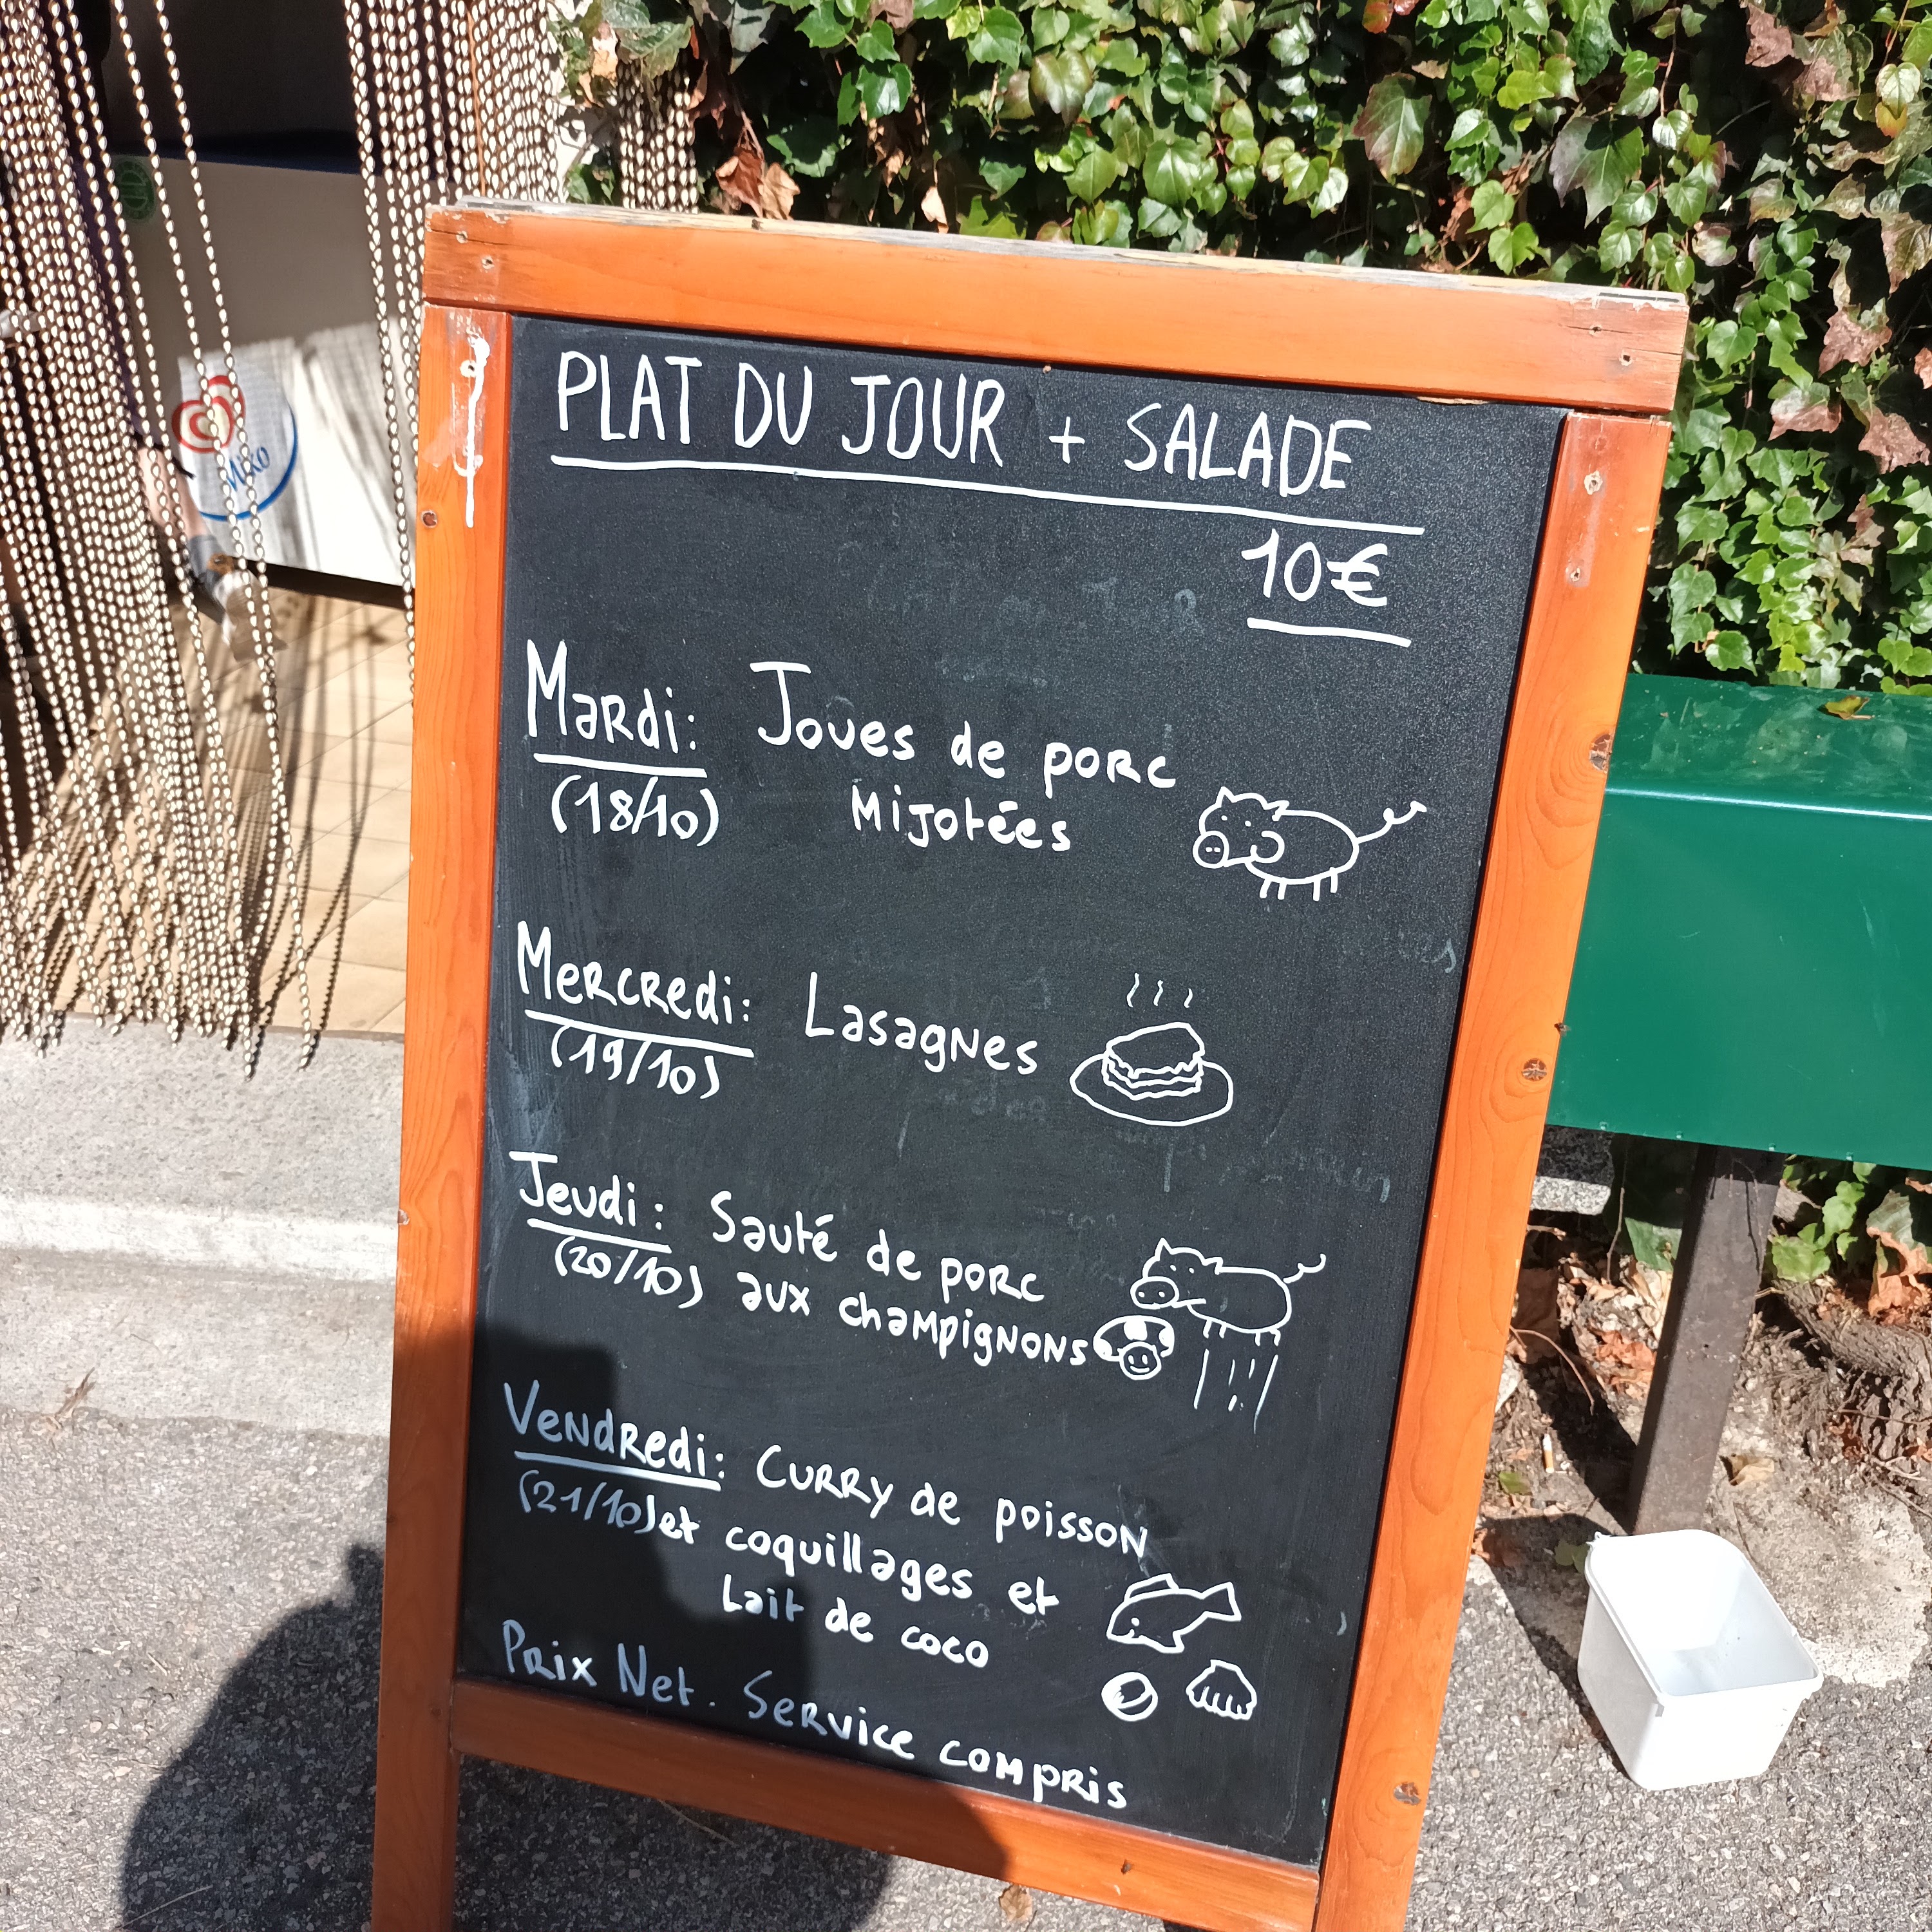 PLAT DU JOUR + SALADE
10€
Mardi: Joues de porc
(18/10) Mijotées
Mercredi: Lasagnes
(19/10)
Jeudi: Sauté de porc
(20/10) aux champignons
Vendredi: Curry de poisson
(21/10) et coquillages et
Lait de coco
Prix Net. Service compris
Miko